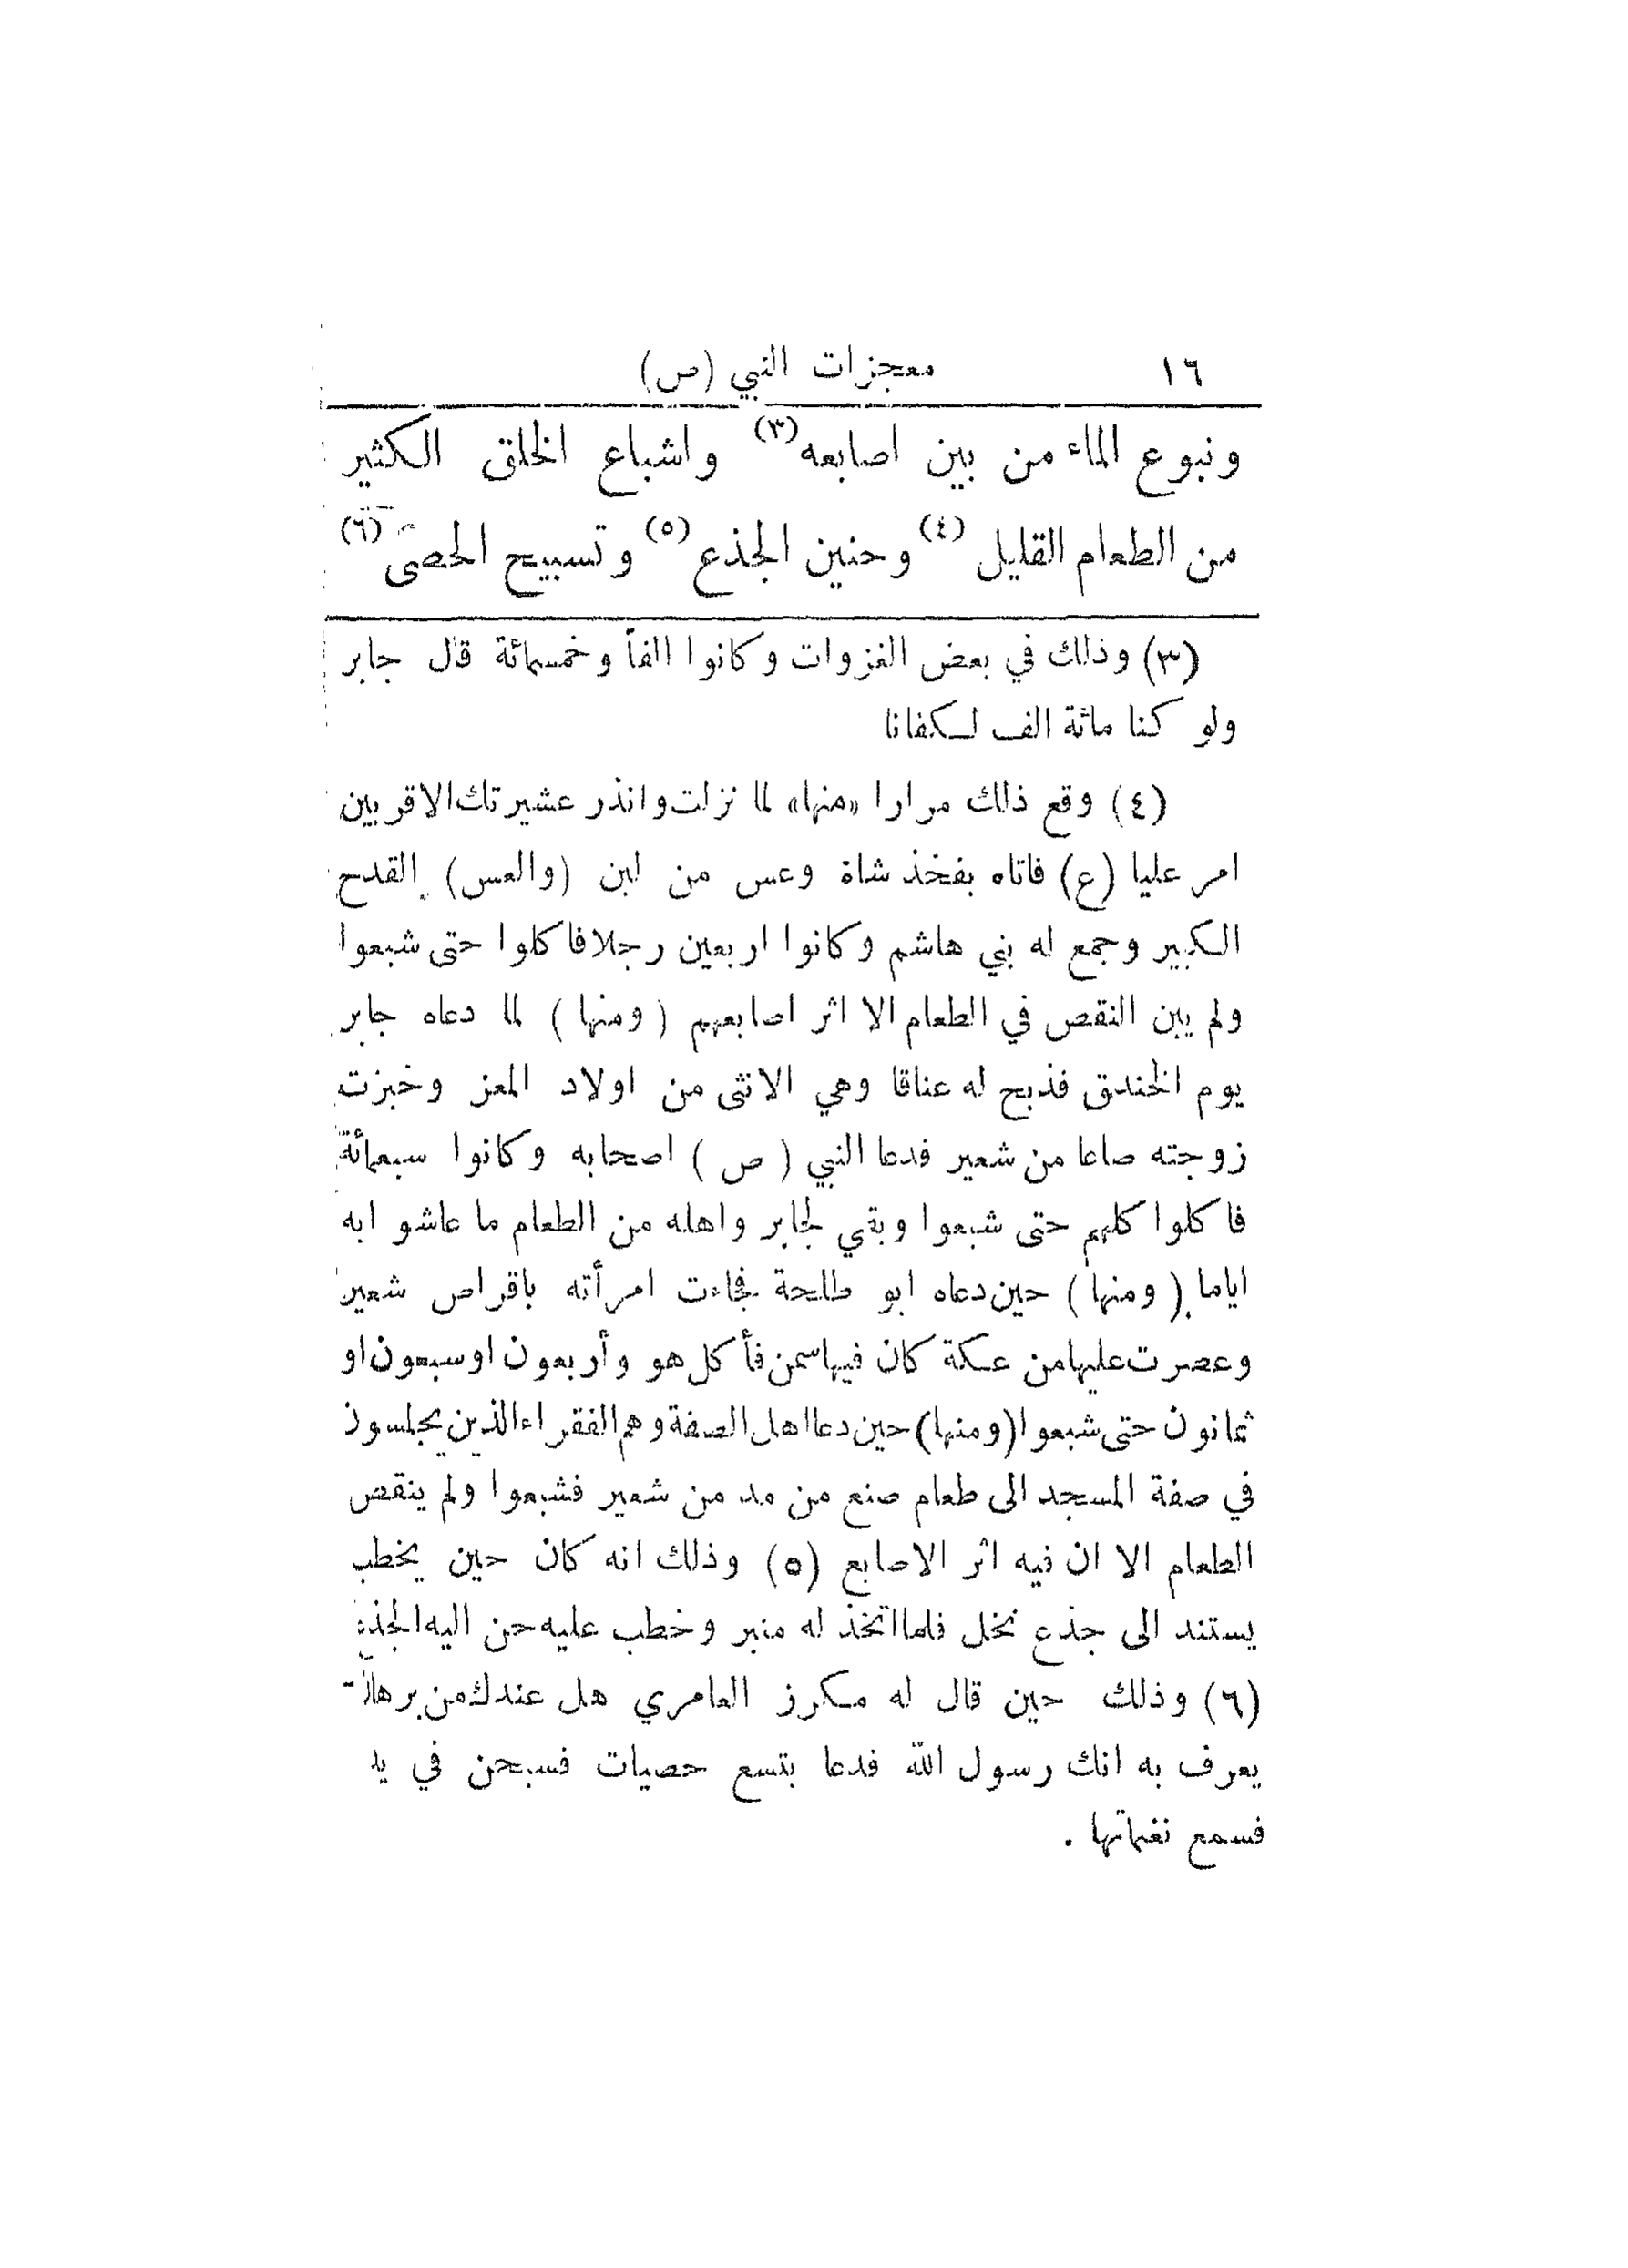 ١٦ معجزات النبي (ص)
ونبوع الماء من بين اصابعه (٣) واشباع الخلق الكثير
من الطعام القليل (٤) وحنين الجذع (٥) وتسبيح الحصى (٦)
(٣) وذلك في بعض الغزوات وكانوا الفاً وخمسمائة قال جابر
ولو كنا مائة الف لكفانا
(٤) وقع ذلك مرارا «منها» لما نزلت وانذر عشيرتك الاقربين
امر عليا (ع) فاتاه بفخذ شاة وعس من لبن (والعس) القدح
الكبير وجمع له بني هاشم وكانوا اربعين رجلا فاكلوا حتى شبعوا
ولم يبن النقص في الطعام الا اثر اصابعهم (ومنها) لما دعاه جابر
يوم الخندق فذبح له عناقا وهي الانثى من اولاد المعز وخبزت
زوجته صاعا من شعير فدعا النبي (ص) اصحابه وكانوا سبعمائة
فاكلوا كلهم حتى شبعوا وبقي لجابر واهله من الطعام ما عاشو ابه
اياما (ومنها) حين دعاه ابو طلحة فجاءت امرأته باقراص شعير
وعصرت عليها من عكة كان فيها سمن فأكل هو وأربعون او سبعون او
ثمانون حتى شبعوا (ومنها) حين دعا اهل الصفة وهم الفقراء الذين يجلسون
في صفة المسجد الى طعام صنع من مد من شعير فشبعوا ولم ينقص
الطعام الا ان فيه اثر الاصابع (٥) وذلك انه كان حين يخطب
يستند الى جذع نخل فلما اتخذ له منبر وخطب عليه حن اليه الجذع
(٦) وذلك حين قال له مكرز العامري هل عندك من برهان
يعرف به انك رسول الله فدعا بتسع حصيات فسبحن في يد
فسمع نغماتها .